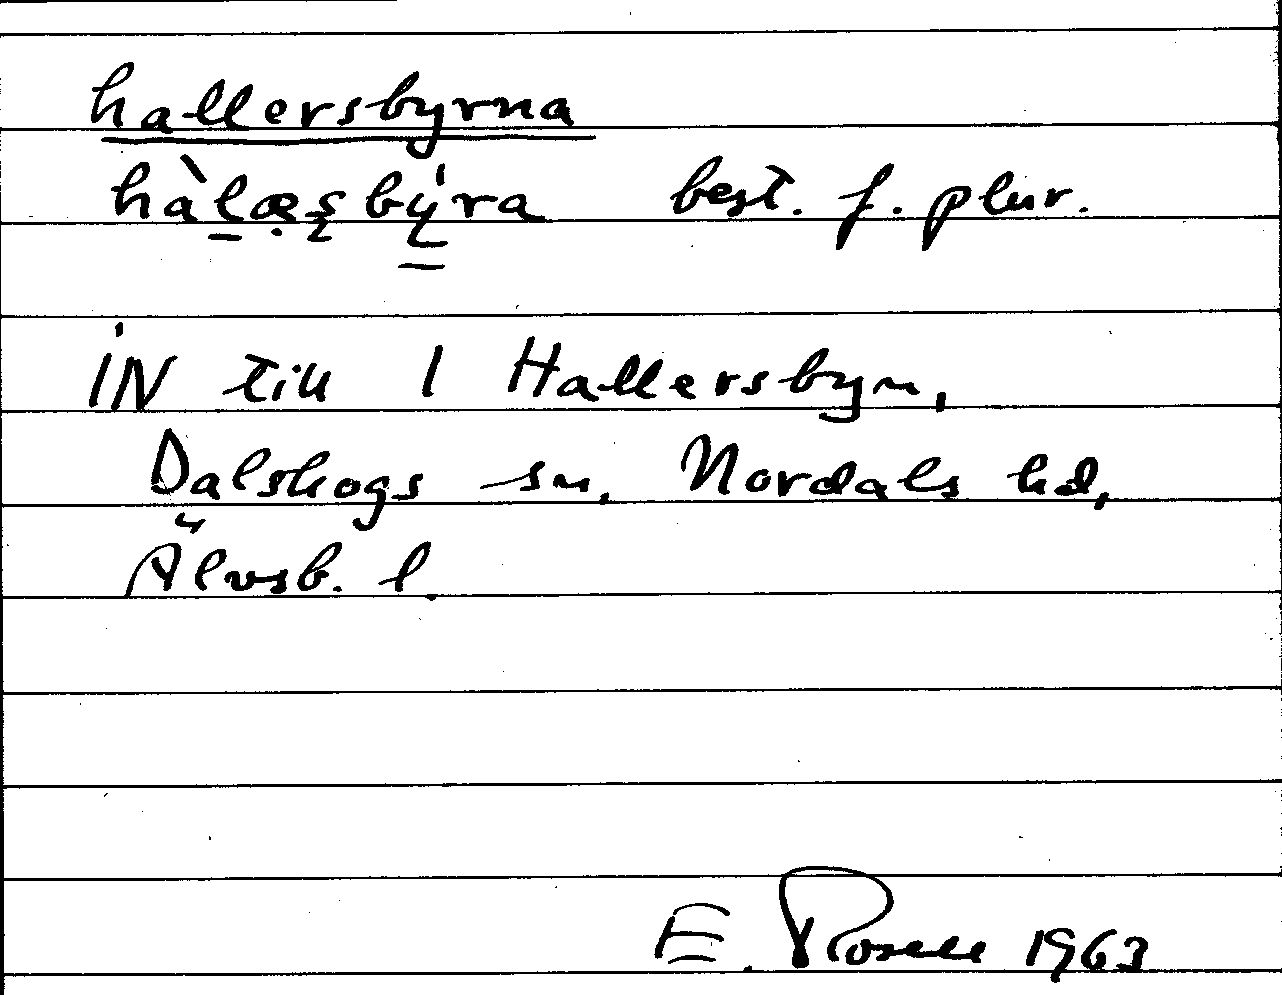 hallersbyrna
hàl̠æ̣ʂbý̠ra best. f. plur.
IN till 1 Hallersbyn,
Dalskogs sn, Nordals hd,
Älvsb. l.
E. Rosell 1963